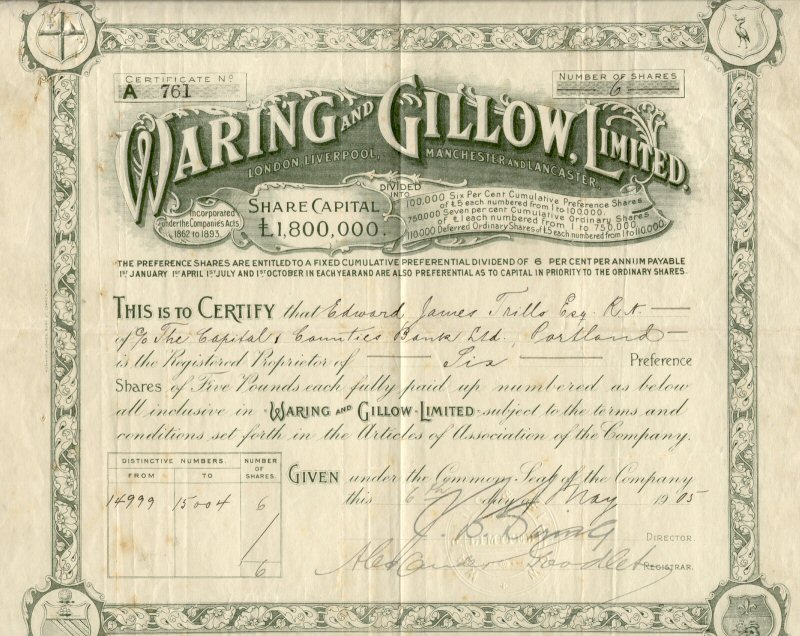 CERTIFICATE No.
A 761
NUMBER OF SHARES
6
WARING AND GILLOW, LIMITED.
LONDON, LIVERPOOL, MANCHESTER AND LANCASTER.
Incorporated
under the Companies Acts
1862 to 1893.
SHARE CAPITAL
£1,800,000.
DIVIDED
INTO
100,000 Six Per Cent Cumulative Preference Shares
of £5 each numbered from 1 to 100,000.
750,000 Seven per cent Cumulative Ordinary Shares
of £1 each numbered from 1 to 750,000.
110,000 Deferred Ordinary Shares of £5 each numbered from 1 to 110,000.
THE PREFERENCE SHARES ARE ENTITLED TO A FIXED CUMULATIVE PREFERENTIAL DIVIDEND OF 6 PER CENT PER ANNUM PAYABLE
1ST JANUARY 1ST APRIL 1ST JULY AND 1ST OCTOBER IN EACH YEAR AND ARE ALSO PREFERENTIAL AS TO CAPITAL IN PRIORITY TO THE ORDINARY SHARES.
THIS IS TO CERTIFY that Edward James Trillo Esq. R.N.
of c/o The Capital & Counties Bank Ltd., Portland
is the Registered Proprietor of Six Preference
Shares of Five Pounds each fully paid up numbered as below
all inclusive in WARING AND GILLOW LIMITED subject to the terms and
conditions set forth in the Articles of Association of the Company.
DISTINCTIVE NUMBERS. NUMBER OF SHARES.
FROM TO
14999 15004 6
6
GIVEN under the Common Seal of the Company
this 6th day of May 1905
DIRECTOR
Alexander Goodlet REGISTRAR.